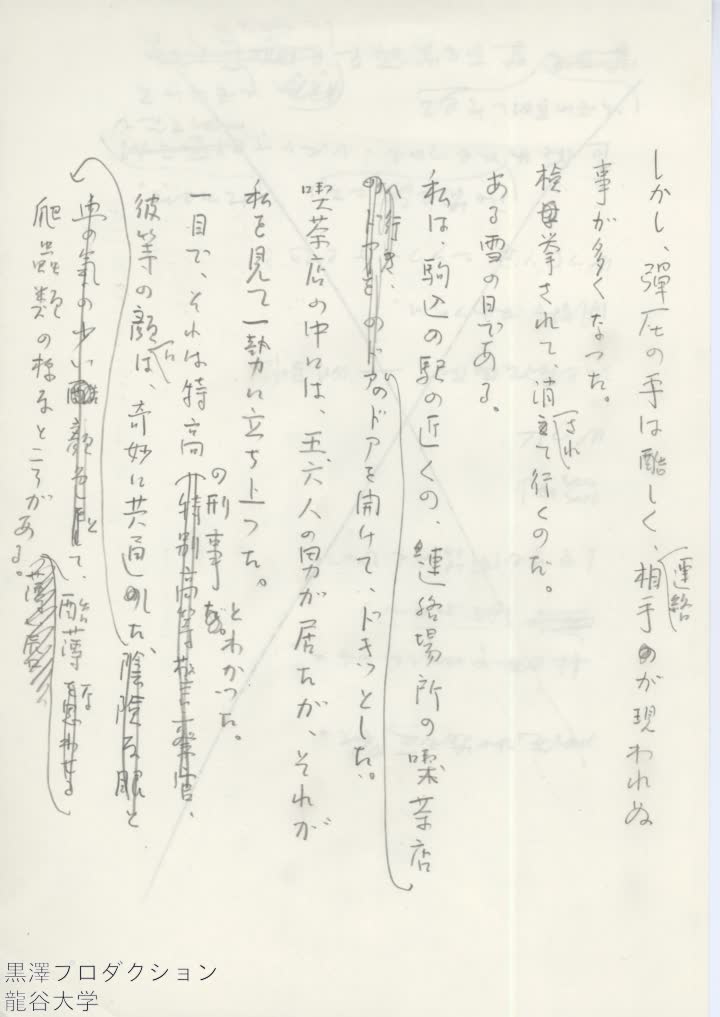 しかし、弾圧の手は酷しく、連絡相手が現われぬ
事が多くなった。
検挙されて消されて行くのだ。
ある雪の日である。
私は、駒込の駅の近くの、連絡場所の喫茶店
へ行き、のドアを開けて、ドキッとした。
喫茶店の中には、五、六人の男が居たが、それが
私を見て一勢に立ち上った。
一目で、それは特高の刑事だとわかった。
彼等の顔には、奇妙に共通した、陰険な眼と
血の氣の少い顔色をして、酷薄な
爬虫類の様なところがある。
黒澤プロダクション
龍谷大学